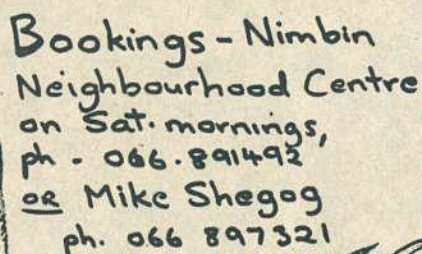 Bookings - Nimbin
Neighbourhood Centre
on Sat. mornings,
ph - 066.891492
OR Mike Shegog
ph. 066 897321